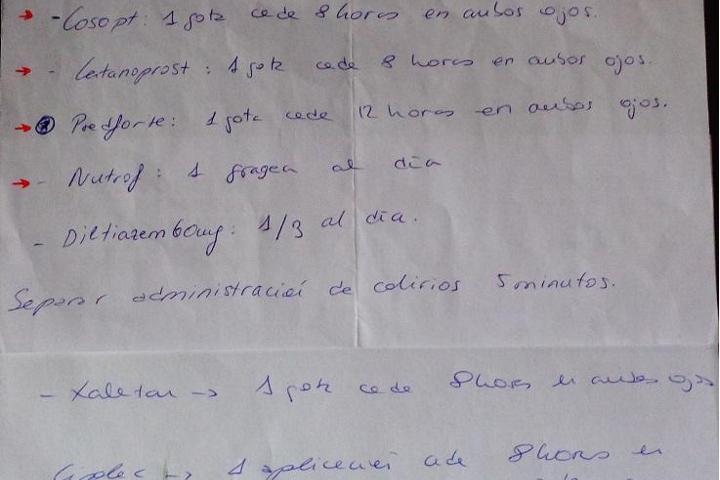 - Cosopt: 1 gota cada 8 horas en ambos ojos.
- Latanoprost: 1 gota cada 8 horas en ambos ojos.
Predforte: 1 gota cada 12 horas en ambos ojos.
- Nutrof: 1 gragea al día
- Diltiazem 60mg: 1/3 al día.
Separar administración de colirios 5 minutos.
- Xalatan → 1 gota cada 8 horas en ambos ojos
→ 1 aplicación cada 8 horas en